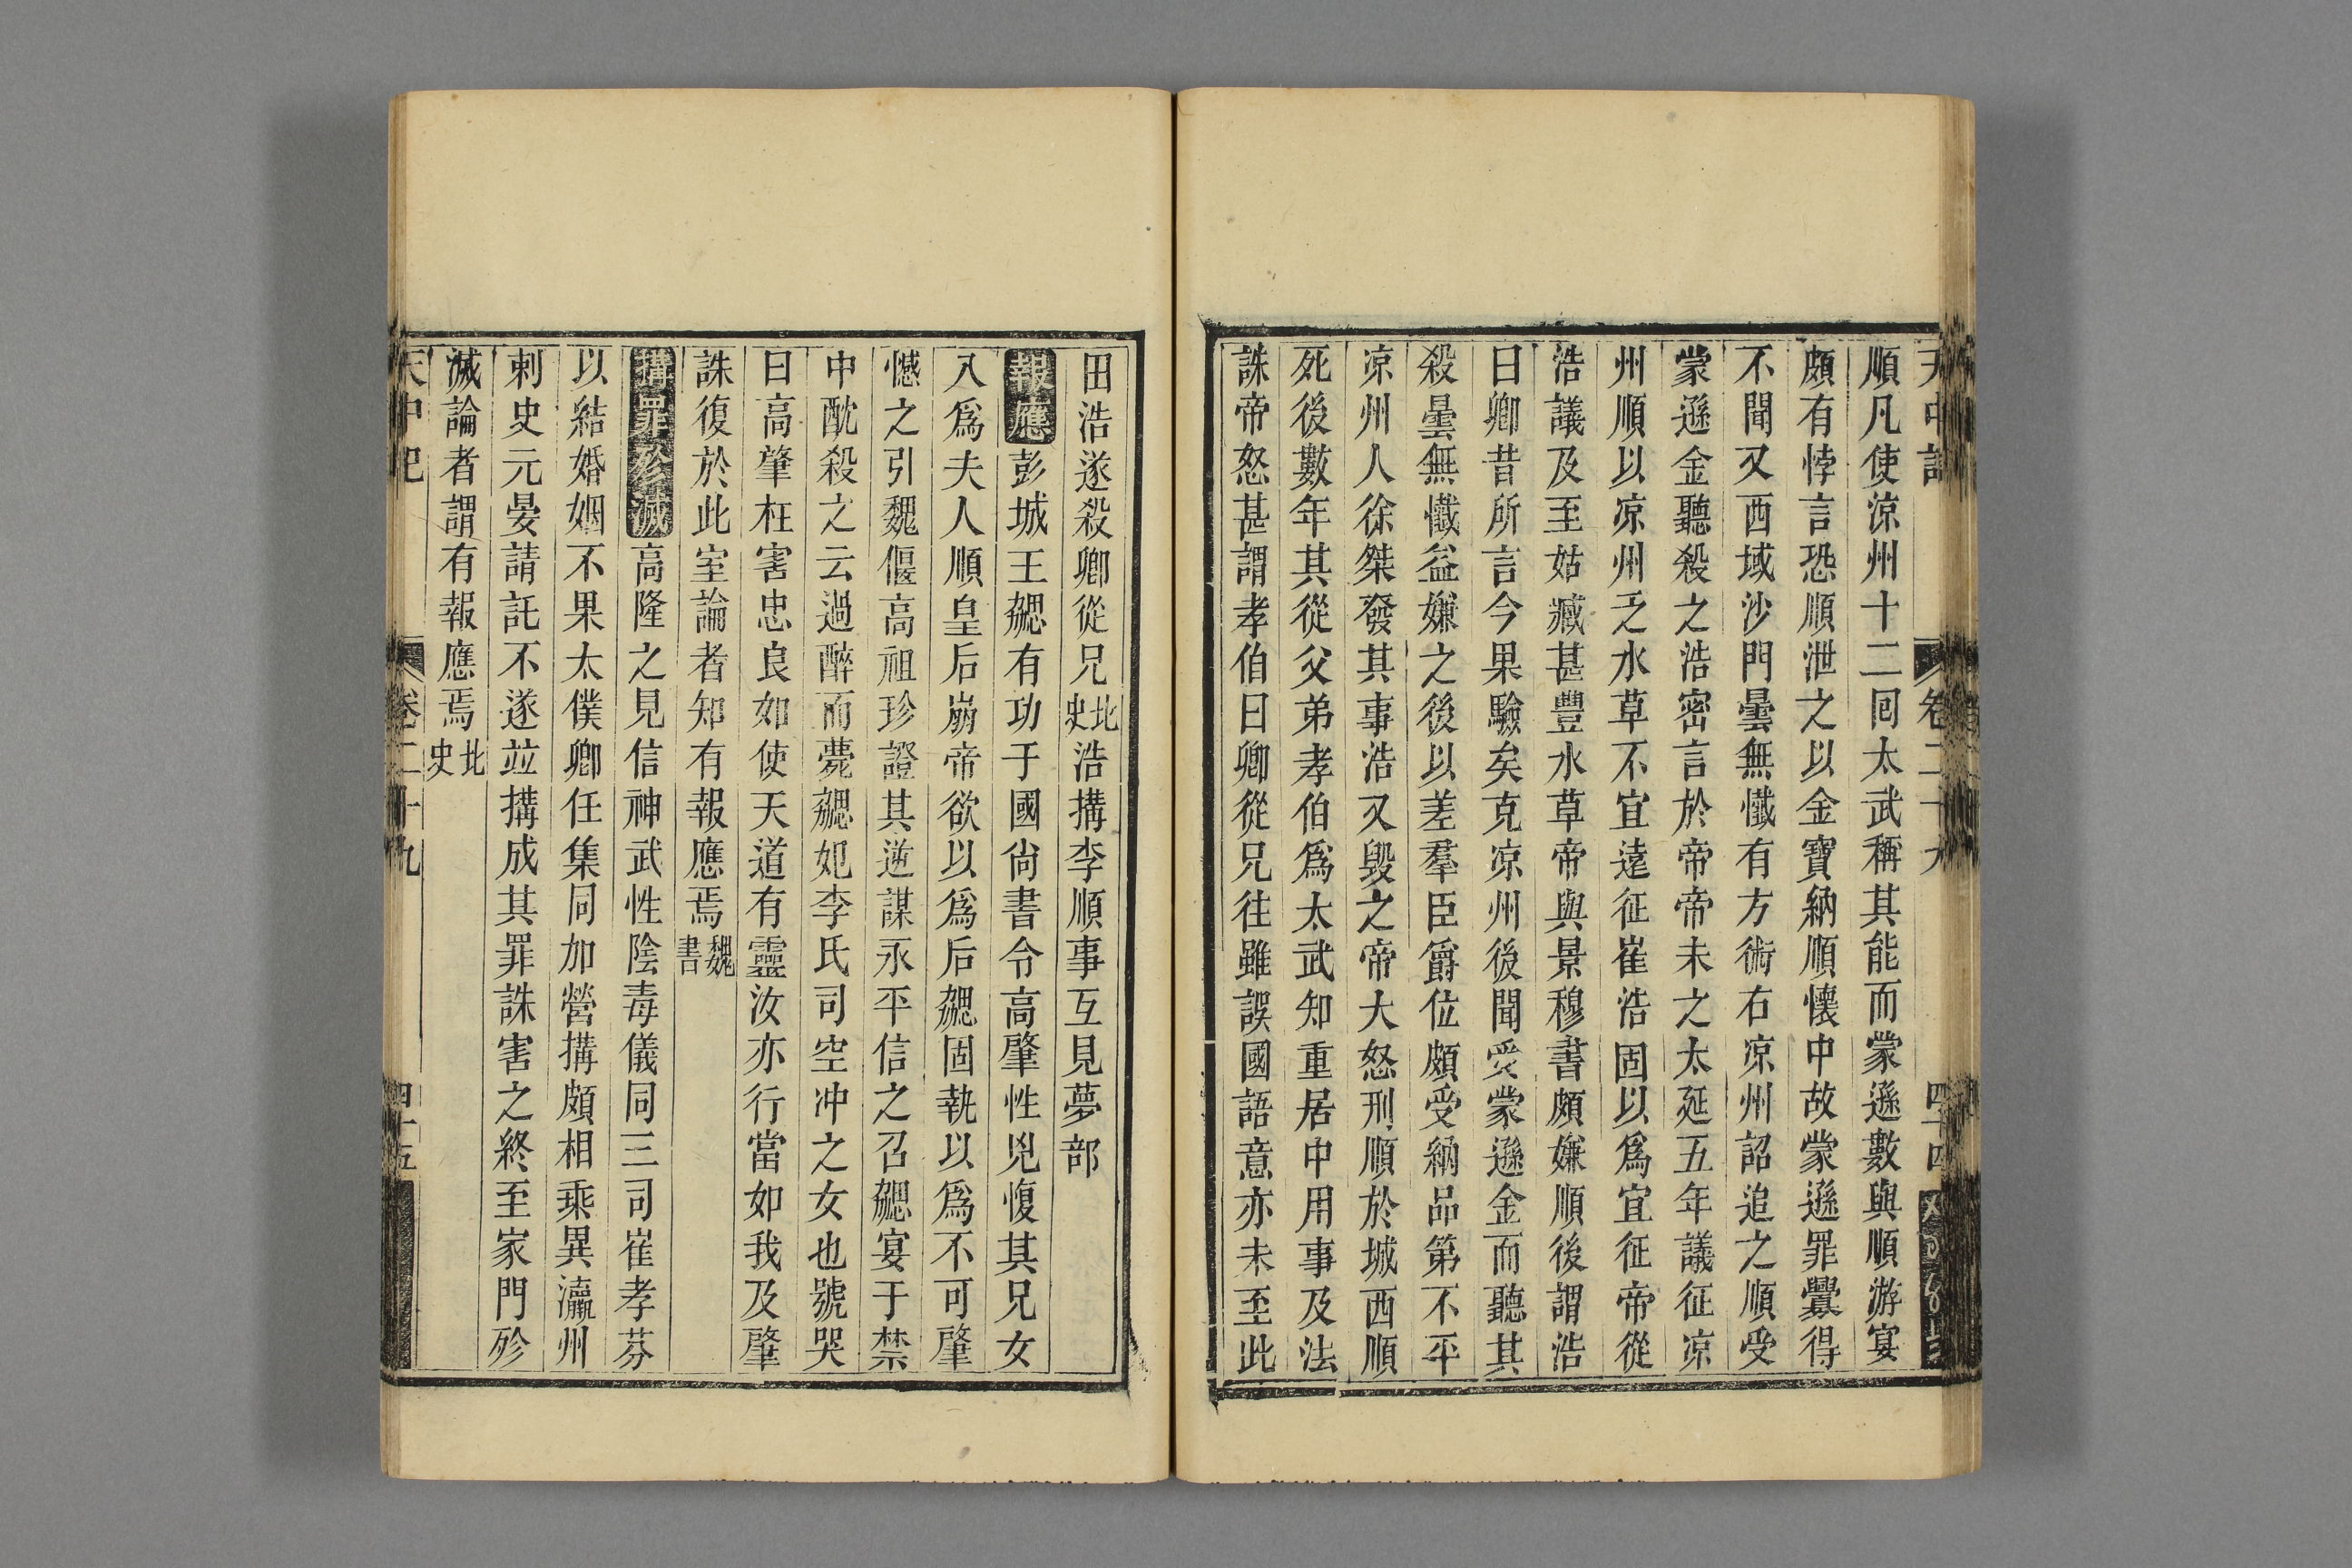 天中記
卷二十九
四十四
順凡使涼州十二囘太武稱其能而蒙遜數與順游宴
頗有悖言恐順泄之以金寶納順懷中故蒙遜罪釁得
不聞又西域沙門曇無懺有方術右凉州詔追之順受
蒙遜金聽殺之浩密言於帝帝未之太延五年議征凉
州順以凉州乏水草不宜遠征崔浩固以爲宜征帝從
浩議及至姑臧甚豐水草帝與景穆書頗嫌順後謂浩
曰卿昔所言今果驗矣克凉州後聞受蒙遜金而聽其
殺曇無懺益嫌之後以差羣臣爵位頗受納品第不平
凉州人徐桀發其事浩又毀之帝大怒刑順於城西順
死後數年其從父弟孝伯爲太武知重居中用事及法
誅帝怒甚謂孝伯曰卿從兄往雖誤國語意亦未至此
田浩遂殺卿從兄北史浩搆李順事互見夢部
報應彭城王勰有功于國尙書令高肇性兇愎其兄女
入爲夫人順皇后崩帝欲以爲后勰固執以爲不可肇
憾之引魏偃高祖珍證其逆謀永平信之召勰宴于禁
中酖殺之云過醉而薨勰妃李氏司空冲之女也號哭
曰高肇枉害忠良如使天道有靈汝亦行當如我及肇
誅復於此室論者知有報應焉魏書
搆罪殄滅高隆之見信神武性陰毒儀同三司崔孝芬
以結婚姻不果太僕卿任集同加營搆頗相乘異瀛州
剌史元晏請託不遂竝搆成其罪誅害之終至家門殄
滅論者謂有報應焉北史
天中記
卷二十九
四十五